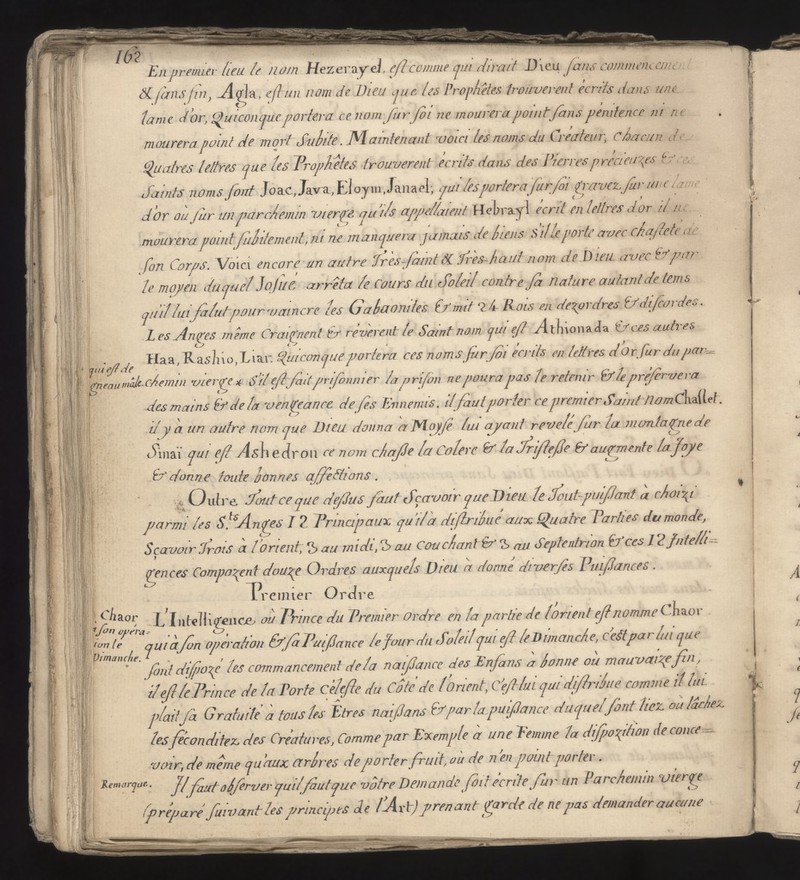 162
En premier lieu le nom Hezerayel, est comme qui dirait Dieu sans commencement
& sans fin, Agla, est un nom de Dieu que les Prophêtes trouverent écrits dans une
lame d'or, Quiconque portera ce nom sur soi ne mourera point sans pénitence ni ne
mourera point de mort Subite. Maintenant voici les noms du Créateur, chacun de
Quatres lettres que les Prophêtes trouverent écrits dans des Pierres précieuzes & ces
Saints noms sont Joac, Java, Eloym, Janael, qui les portera sur soi gravez sur une lame
d'or où sur un parchemin vierge qu'ils appellaient Hebrayl écrit en lettres d'or il ne
mourera point subitement, ni ne manquera jamais de biens s'il le porte avec chasteté de
son Corps. Voici encore un autre Très-saint & Très-haut nom de Dieu avec & par
le moyen duquel Josué arrêta le Cours du Soleil contre sa nature autant de tems
qu'il lui falut pour vaincre les Gabaonites & mit 24 Rois en dezordres & discordes.
Les Anges même Craignent & révèrent le Saint nom qui est Athionada & ces autres
Haa, Rashio, Liar. Quiconque portera ces noms sur soi écrits en lettres d'or sur du par=
qui est de
gneau mâle. chemin vierge * S'il est fait prisonnier la prison ne poura pas le retenir & le préservera
des mains & de la vengeance de ses Ennemis, il faut porter ce premier Saint nom Chastet.
il y a un autre nom que Dieu donna a Moyse lui ayant revelé sur la montagne de
Sinaï qui est Ashedron ce nom chasse la Colere & la Tristesse & augmente la Joye
& donne toute bonnes affections.
Outre Tout ce que dessus faut Sçavoir que Dieu le Tout-puissant à choizi
parmi les S.ts Anges 12 Principaux qu'il a distribué aux Quatre Parties du monde,
Sçavoir Trois à l'orient, 3 au midi, 3 au Couchant & 3 au Septentrion & ces 12 Intelli=
gences Compozent douze Ordres auxquels Dieu à donné diverses Puissances.
Premier Ordre
Chaor
son opéra-
ion le
Dimanche.
L'Intelligence, où Prince du Premier ordre en la partie de l'orient est nommé Chaor
qui à son opération & sa Puissance le Jour du Soleil qui est le Dimanche, c'est par lui que
sont dispozé les commancement de la naissance des Enfans à bonne où mauvaize fin,
il est le Prince de la Porte Céleste du Côté de l'Orient, C'est lui qui distribue comme il lui
plait sa Gratuité à tous les Êtres naissans & par la puissance duquel sont liez où lâchez
les féconditez des Créatures, Comme par Exemple à une Femme la dispozition de conce=
voir, de même qu'aux arbres de porter fruit, où de n'en point porter.
Remarque. Il faut observer qu'il faut que vôtre Demande soit écrite sur un Parchemin vierge
(préparé suivant les principes de l'Art) prenant garde de ne pas demander aucune